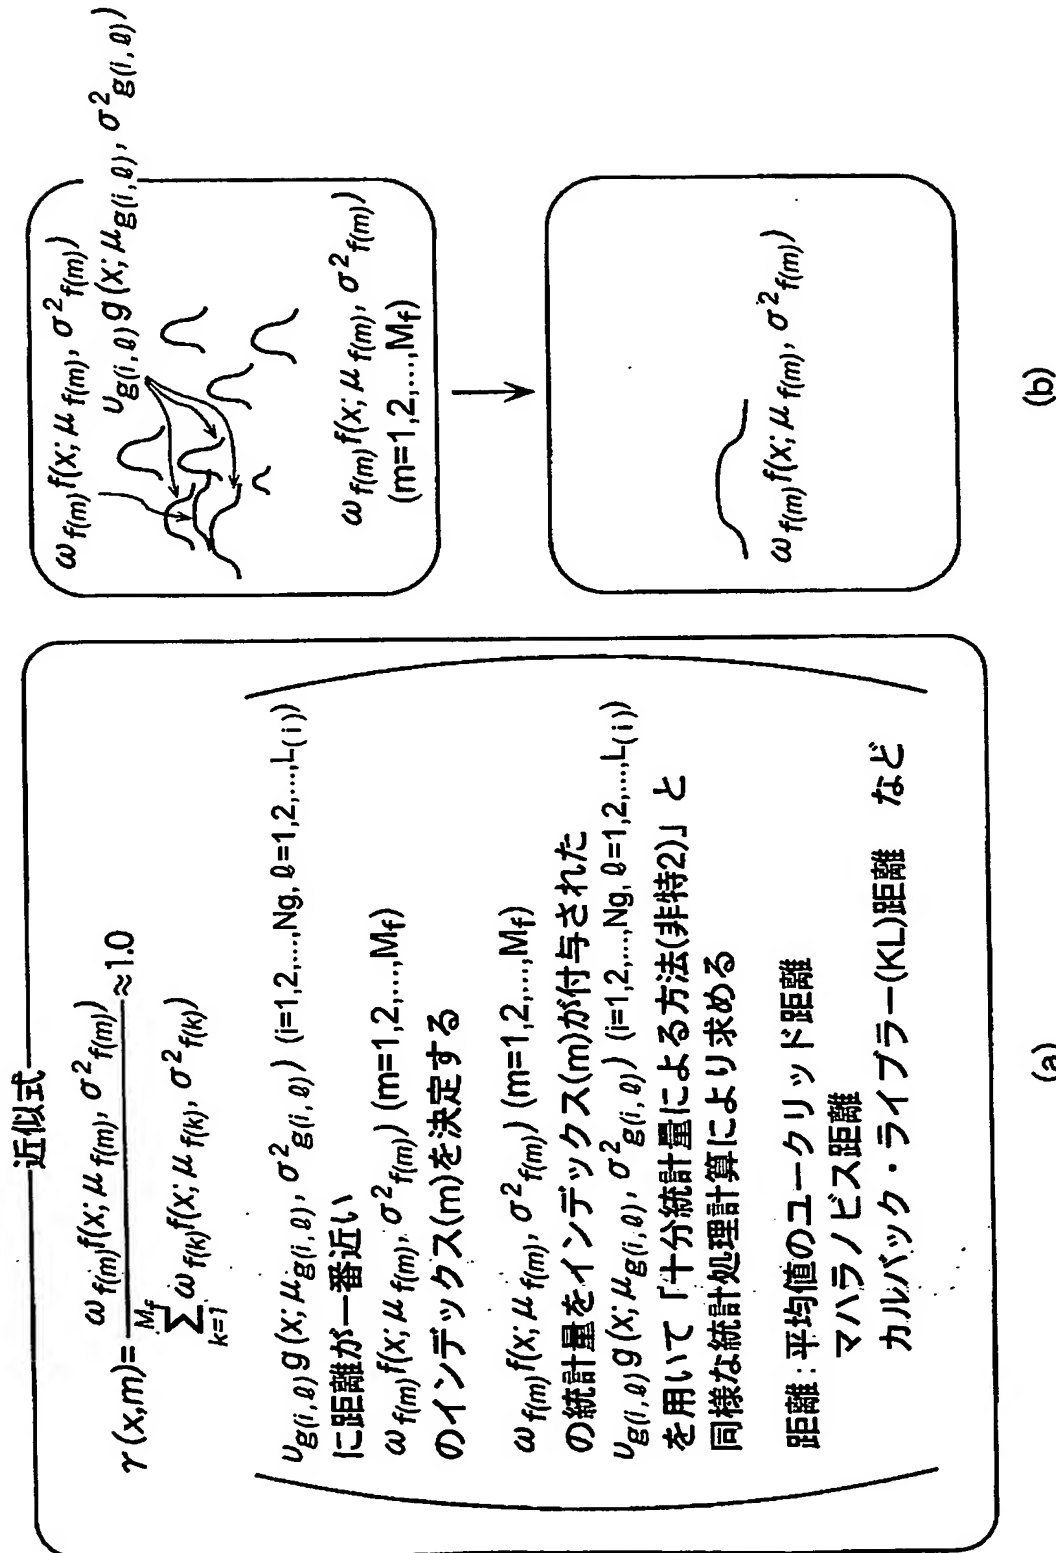 近似式
γ(x,m)= ω_{f(m)}f(x; μ_{f(m)}, σ²_{f(m)}) / Σ_{k=1}^{M_f} ω_{f(k)}f(x; μ_{f(k)}, σ²_{f(k)}) ≈1.0
υ_{g(i,ℓ)}g(x; μ_{g(i,ℓ)}, σ²_{g(i,ℓ)}) (i=1,2,...,Ng, ℓ=1,2,...,L_{(i)})
に距離が一番近い
ω_{f(m)}f(x; μ_{f(m)}, σ²_{f(m)}) (m=1,2,...,M_f)
のインデックス(m)を決定する
ω_{f(m)}f(x; μ_{f(m)}, σ²_{f(m)}) (m=1,2,...,M_f)
の統計量をインデックス(m)が付与された
υ_{g(i,ℓ)}g(x; μ_{g(i,ℓ)}, σ²_{g(i,ℓ)}) (i=1,2,...,Ng, ℓ=1,2,...,L_{(i)})
を用いて「十分統計量による方法(非特2)」と
同様な統計処理計算により求める
距離:平均値のユークリッド距離
マハラノビス距離
カルバック・ライブラー(KL)距離 など
(a)
ω_{f(m)}f(x; μ_{f(m)}, σ²_{f(m)})
υ_{g(i,ℓ)}g(x; μ_{g(i,ℓ)}, σ²_{g(i,ℓ)})
ω_{f(m)}f(x; μ_{f(m)}, σ²_{f(m)})
(m=1,2,...,M_f)
ω_{f(m)}f(x; μ_{f(m)}, σ²_{f(m)})
(b)